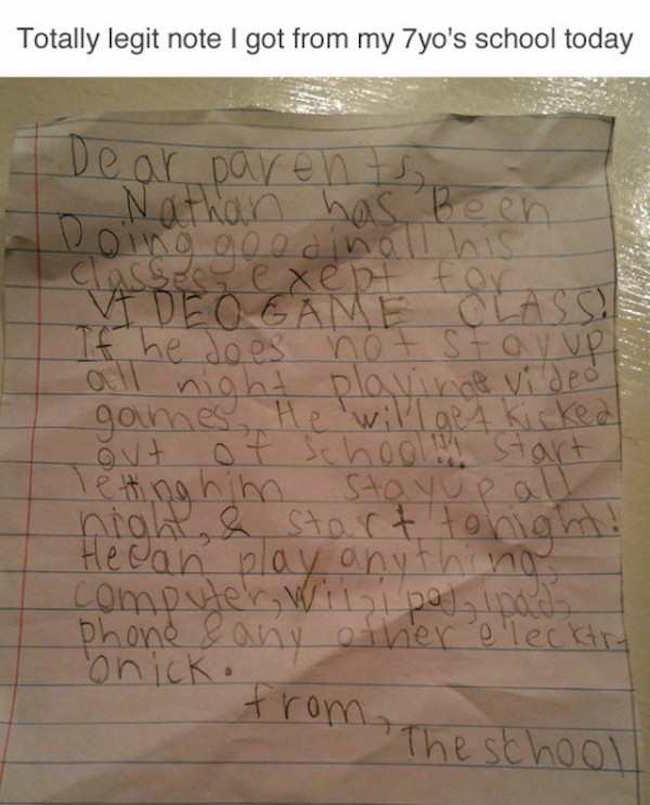 Totally legit note I got from my 7yo's school today
Dear parents,
Nathan has Been
Doing good in all his
classes, exept for
VIDEO GAME CLASS!
If he does not stay up
all night playing video
games, He will get kicked
out of school!!! Start
letting him stay up all
night, & start tonight!
He can play anything,
computer, wii, i pod, ipad,
phone & any other elecktr-
onick.
from,
The school